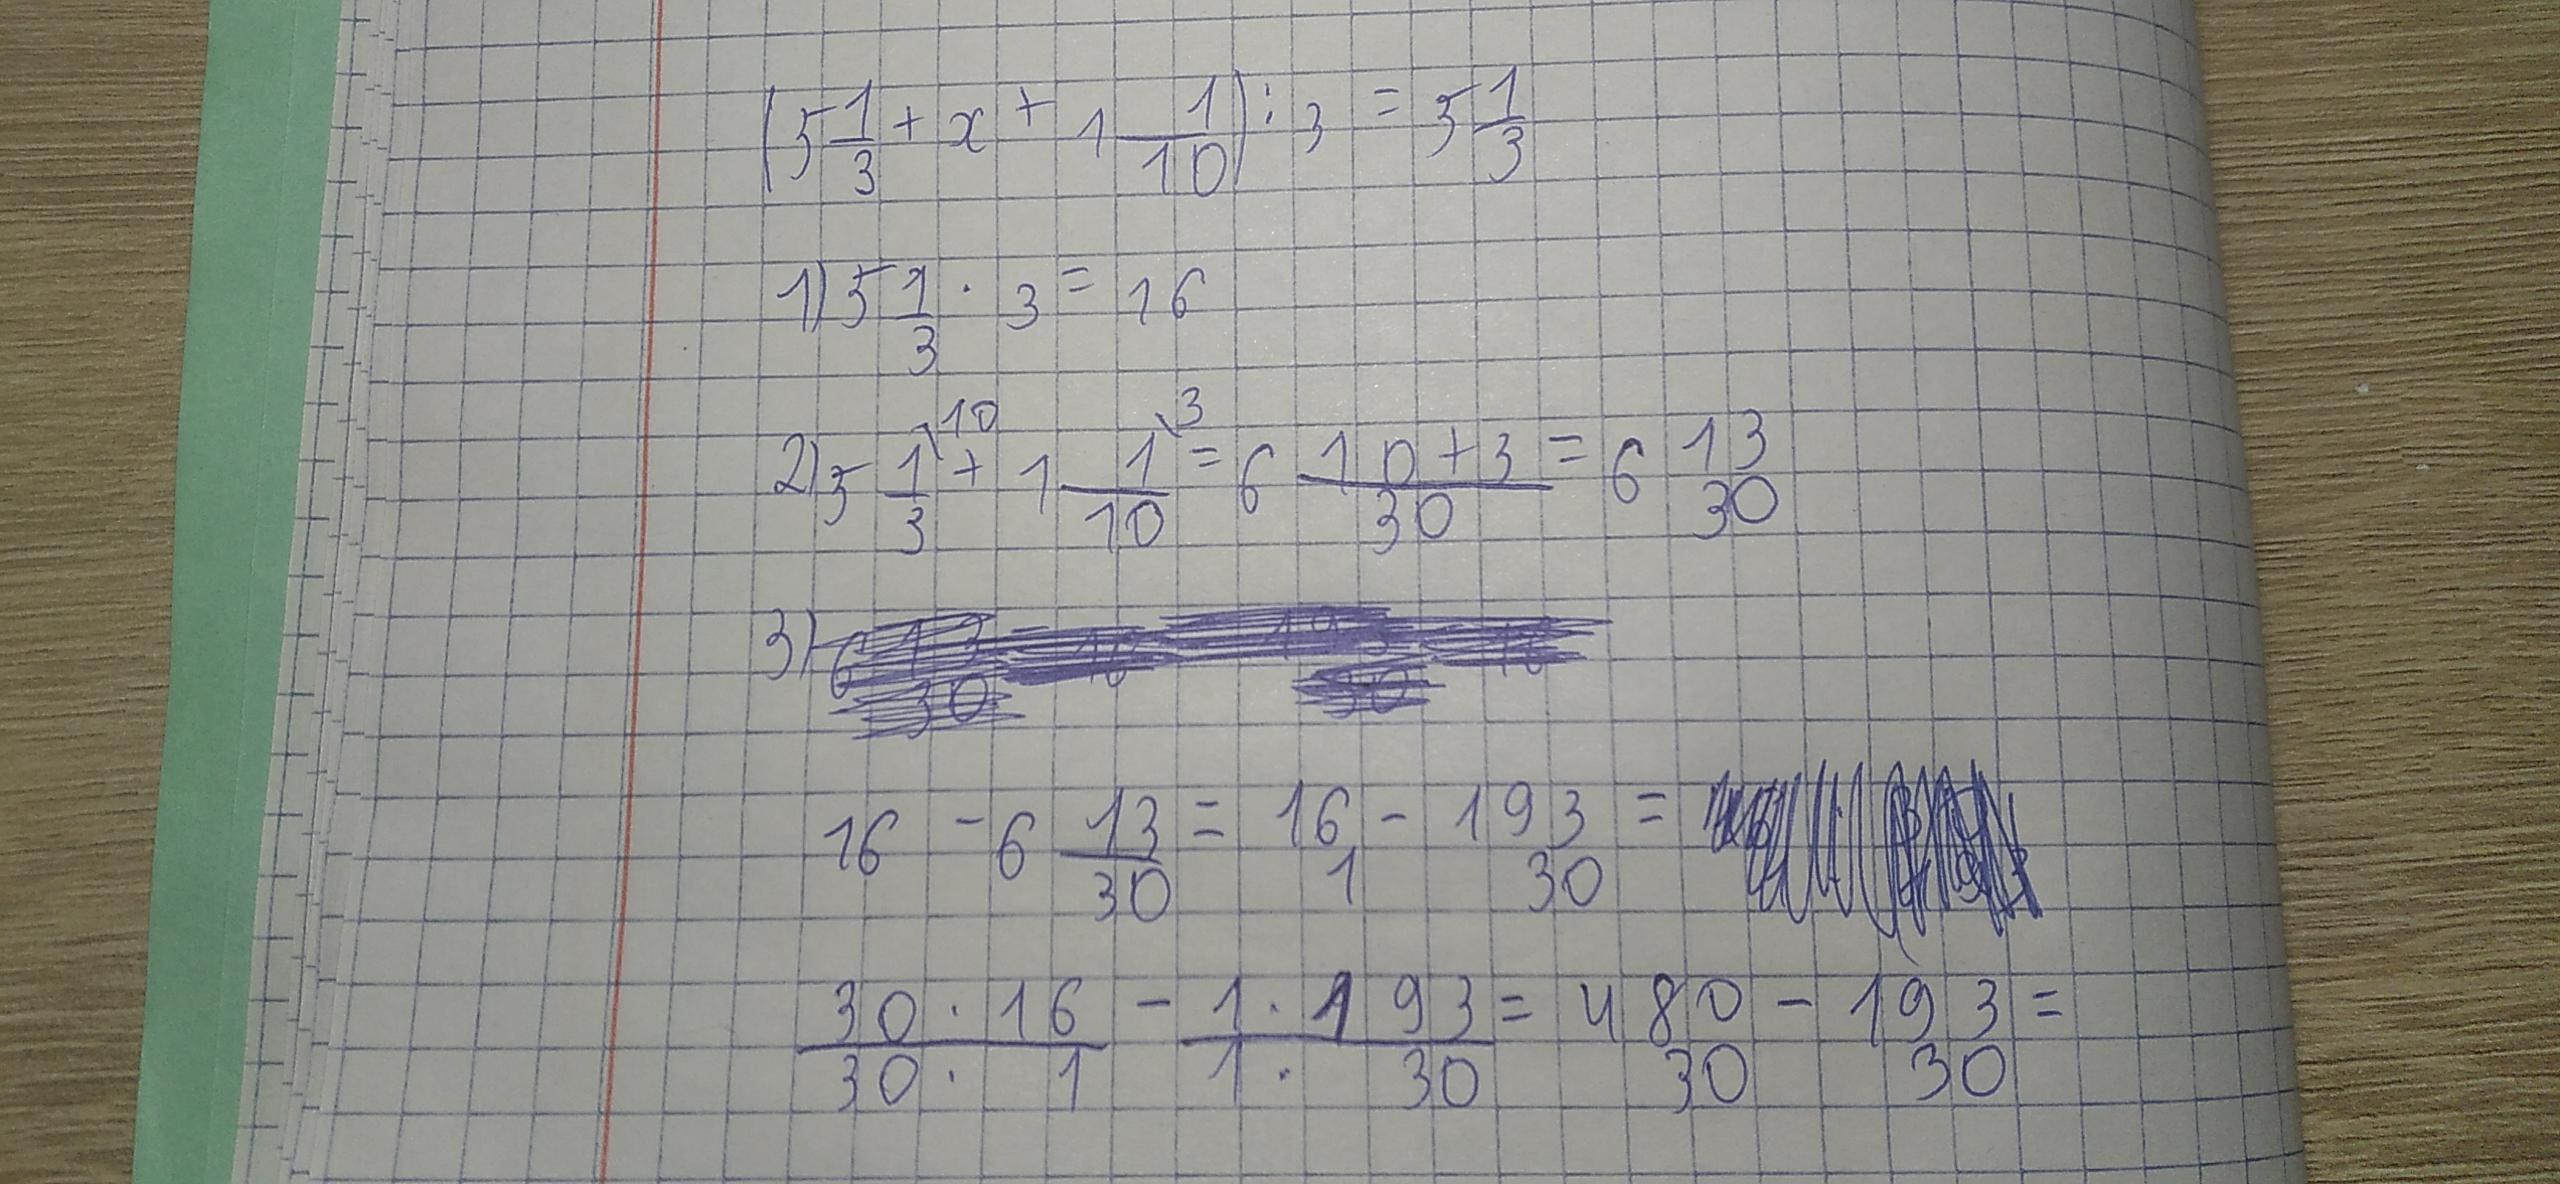 (5 1/3 + x + 1 1/10) : 3 = 5 1/3
1) 5 1/3 · 3 = 16
2) 5 1/3 \10 + 1 1/10 \3 = 6 10+3/30 = 6 13/30
3)
16 - 6 13/30 = 16/1 - 193/30 =
30·16/30·1 - 1·193/1·30 = 480/30 - 193/30 =